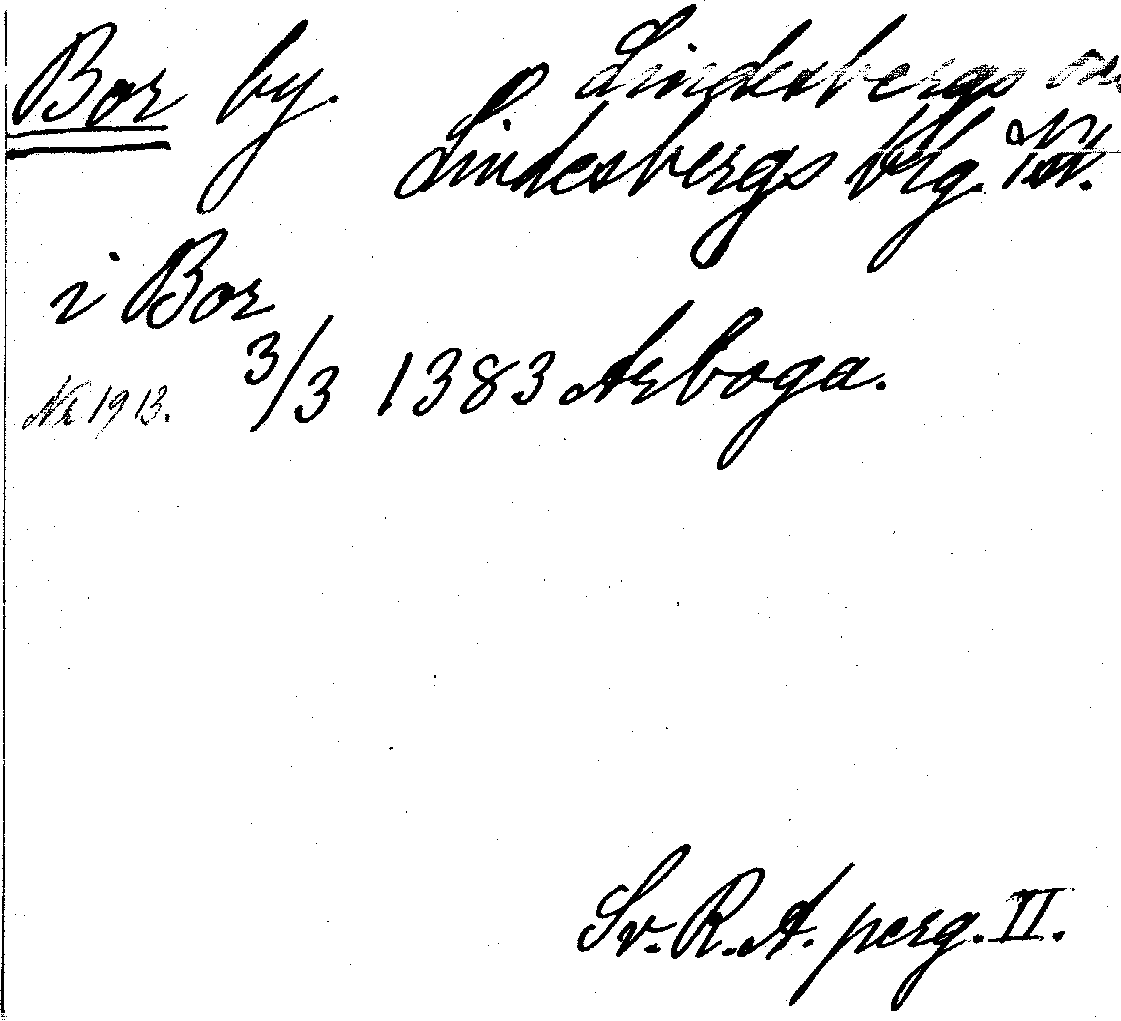 Bor by. Lindesbergs
Lindesbergs blg.
i Bor
Nr 1913. 3/3 1383 Arboga.
Sv. R. A. perg. II.